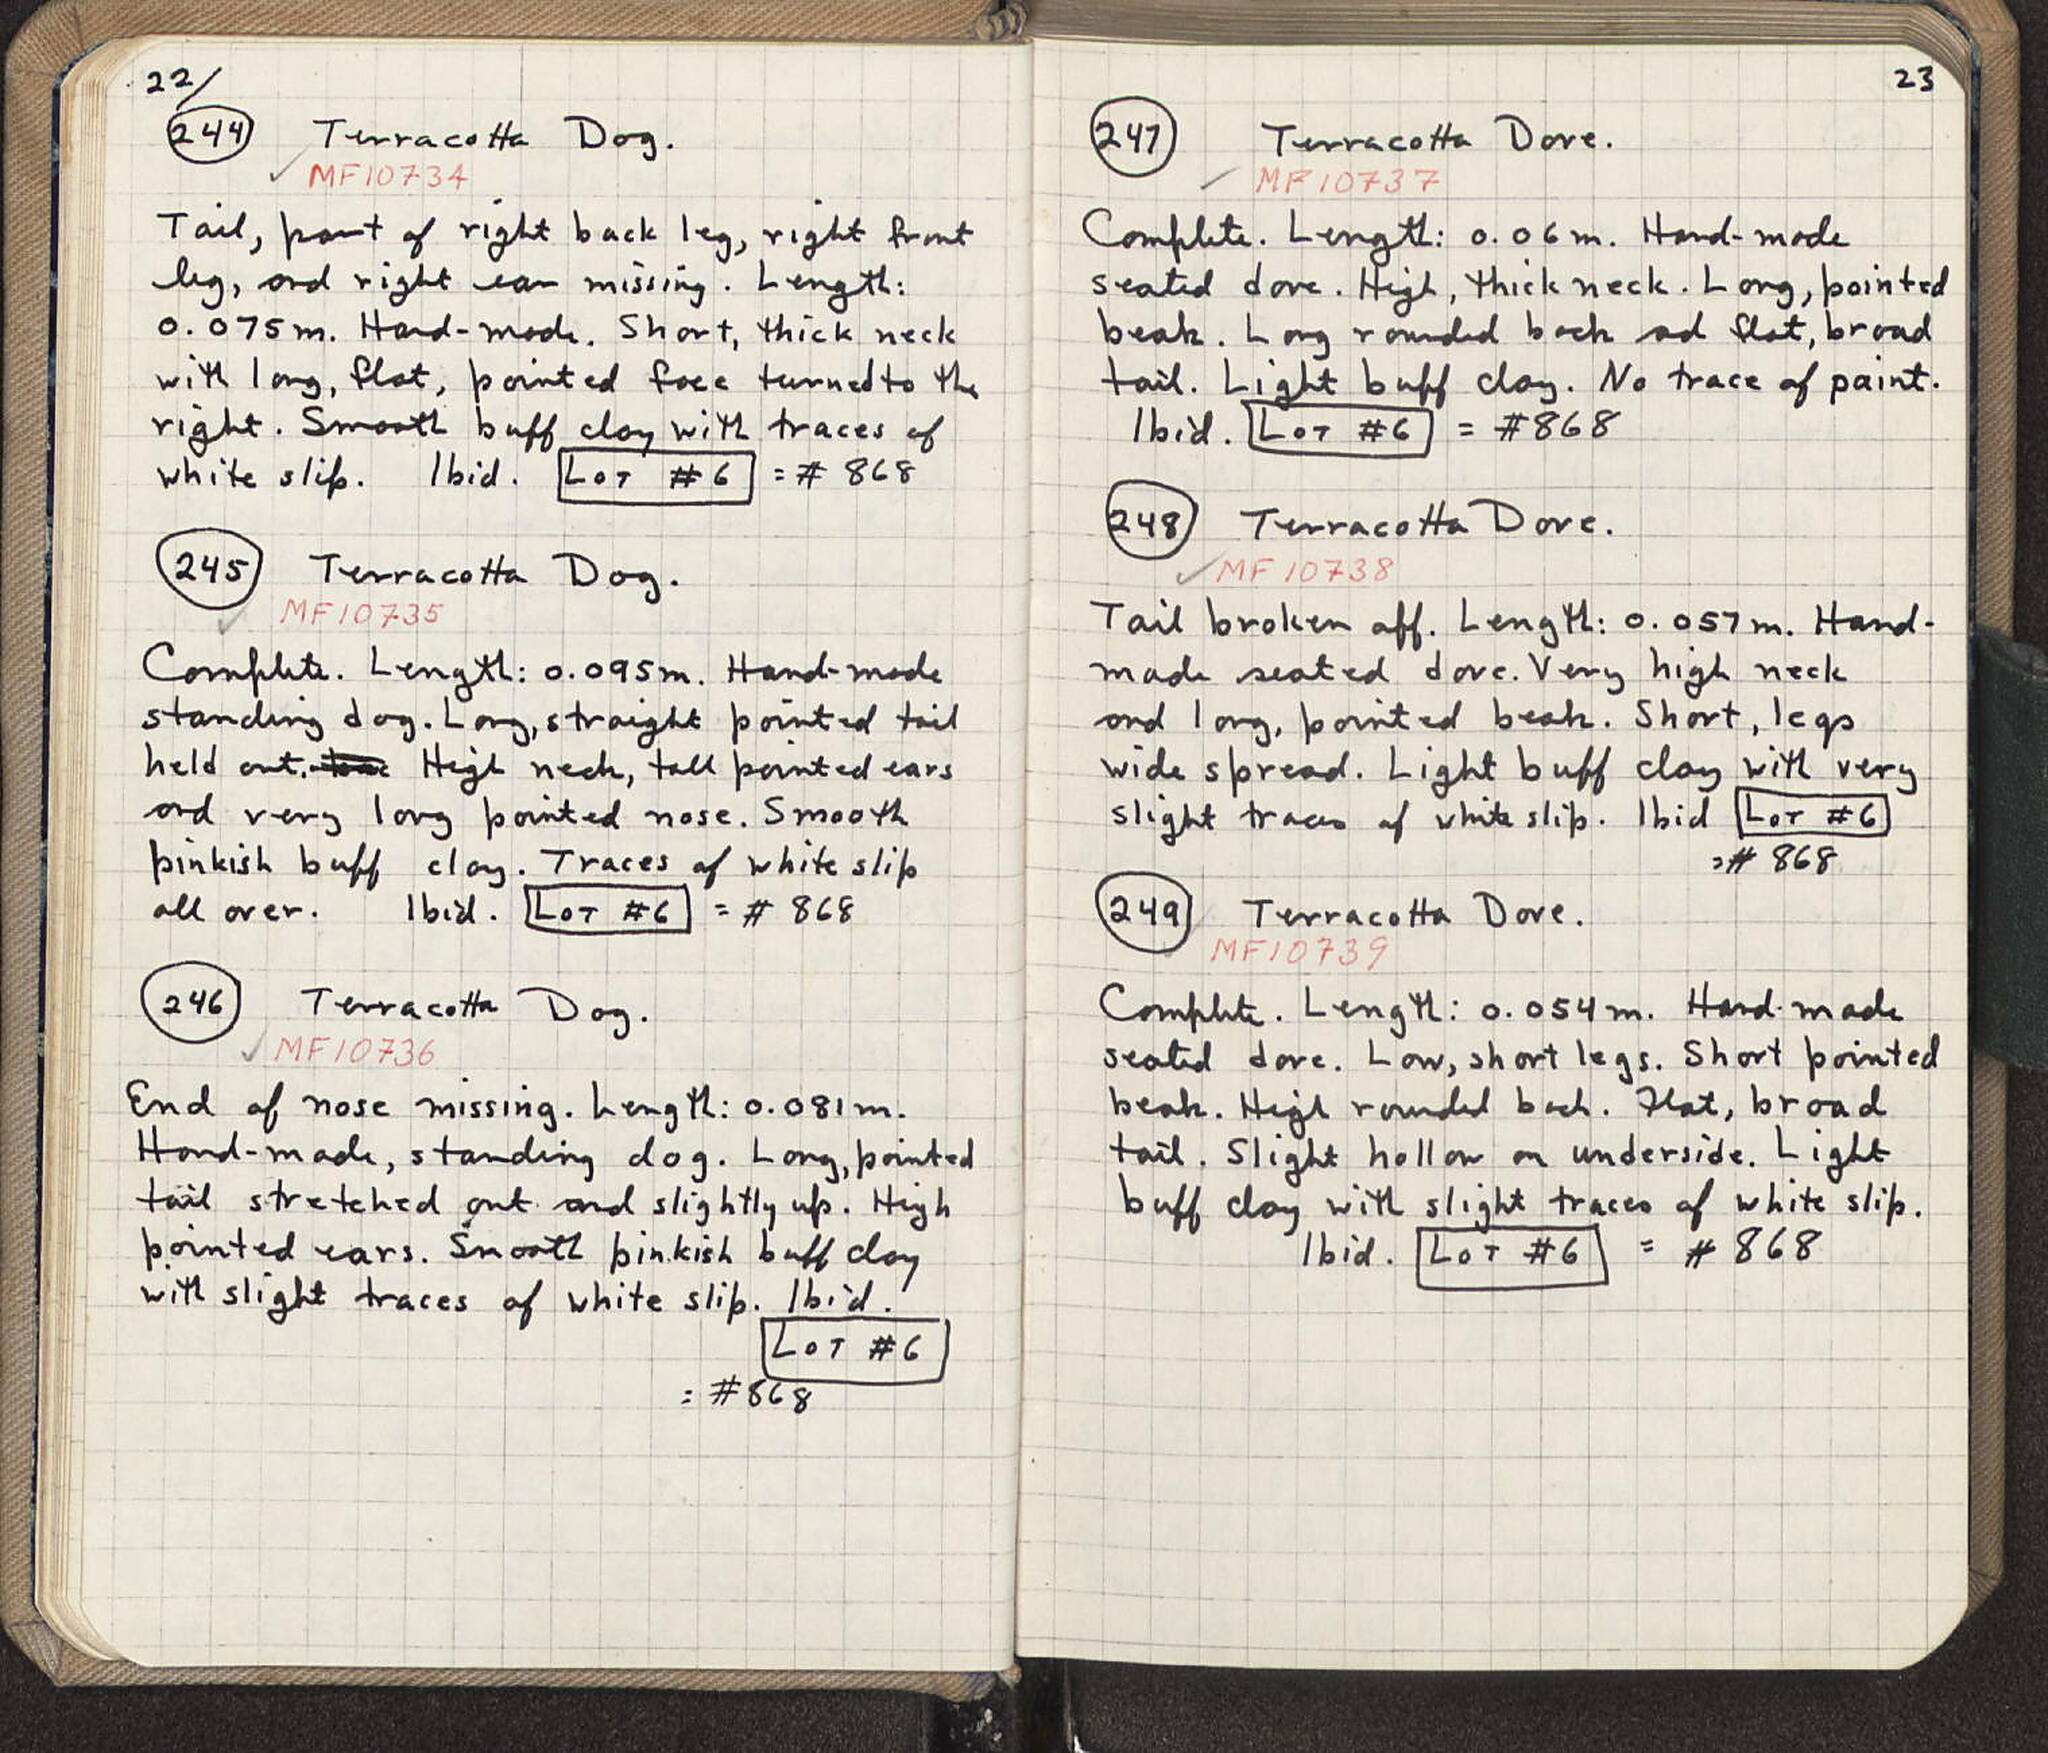 22/
244 Terracotta Dog.
MF10734
Tail, part of right back leg, right front
leg, and right ear missing. Length:
0.075m. Hand-made. Short, thick neck
with long, flat, pointed face turned to the
right. Smooth buff clay with traces of
white slip. Ibid. Lot #6 = # 868
245 Terracotta Dog.
MF10735
Complete. Length: 0.095m. Hand-made
standing dog. Long, straight pointed tail
held out. High neck, tall pointed ears
and very long pointed nose. Smooth
pinkish buff clay. Traces of white slip
all over. Ibid. Lot #6 = # 868
246 Terracotta Dog.
MF10736
End of nose missing. Length: 0.081m.
Hand-made, standing dog. Long, pointed
tail stretched out and slightly up. High
pointed ears. Smooth pinkish buff clay
with slight traces of white slip. Ibid.
Lot #6
= #868
23
247 Terracotta Dove.
MF10737
Complete. Length: 0.06m. Hand-made
seated dove. High, thick neck. Long, pointed
beak. Long rounded back and flat, broad
tail. Light buff clay. No trace of paint.
Ibid. Lot #6 = #868
248 Terracotta Dove.
MF10738
Tail broken off. Length: 0.057m. Hand-
made seated dove. Very high neck
and long, pointed beak. Short, legs
wide spread. Light buff clay with very
slight traces of white slip. Ibid Lot #6
= # 868
249 Terracotta Dove.
MF10739
Complete. Length: 0.054m. Hand-made
seated dove. Low, short legs. Short pointed
beak. High rounded back. Flat, broad
tail. Slight hollow on underside. Light
buff clay with slight traces of white slip.
Ibid. Lot #6 = # 868